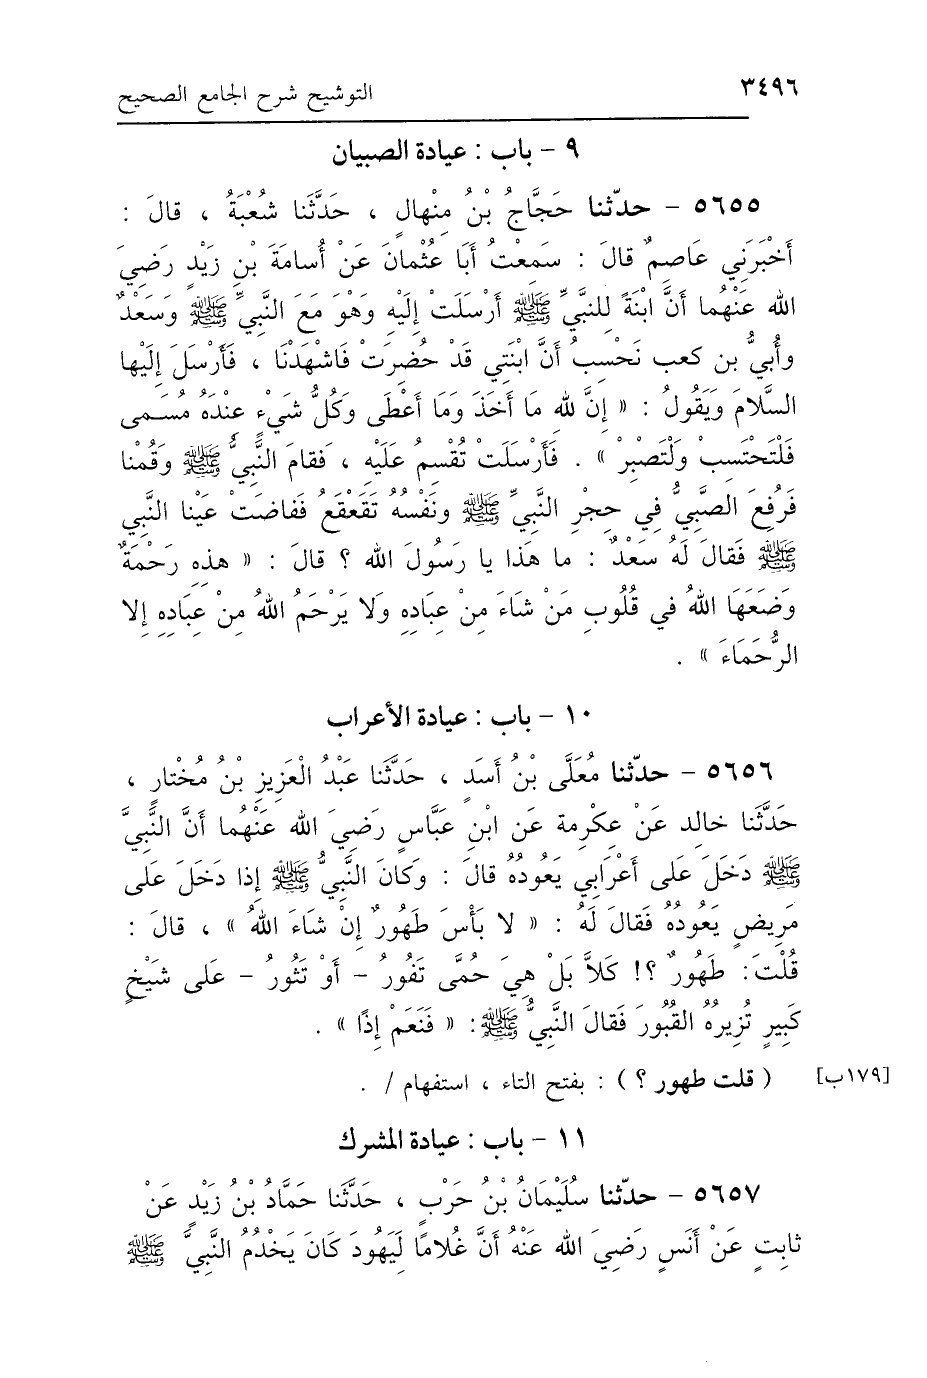 ٣٤٩٦
التوشيح شرح الجامع الصحيح
٩ – باب : عيادة الصبيان
٥٦٥٥ – حدّثنا حَجَّاجُ بْنُ مِنْهالٍ ، حَدَّثَنا شُعْبَةُ ، قالَ :
أَخْبَرَنِي عَاصِمٌ قالَ : سَمِعْتُ أَبَا عُثْمانَ عَنْ أُسامَةَ بْنِ زَيْدٍ رَضِيَ
الله عَنْهُما أَنَّ ابْنَةً لِلنَّبِيِّ ﷺ أَرْسَلَتْ إِلَيْهِ وَهْوَ مَعَ النَّبِيِّ ﷺ وَسَعْدٌ
وأُبيُّ بن كعب نَحْسِبُ أَنَّ ابْنَتِي قَدْ حُضِرَتْ فَاشْهَدْنَا ، فَأَرْسَلَ إِلَيْها
السَّلَامَ وَيَقُولُ : « إِنَّ للهِ مَا أَخَذَ وَمَا أَعْطَى وَكُلُّ شَيْءٍ عِنْدَهُ مُسَمى
فَلْتَحْتَسِبْ وَلْتَصْبِرْ » . فَأَرْسَلَتْ تُقْسِمُ عَلَيْهِ ، فَقامَ النَّبِيُّ ﷺ وَقُمْنا
فَرُفِعَ الصَّبِيُّ فِي حِجْرِ النَّبِيِّ ﷺ وَنَفْسُهُ تَقَعْقَعُ فَفاضَتْ عَيْنا النَّبِي
ﷺ فَقالَ لَهُ سَعْدٌ : ما هَذا يا رَسُولَ الله ؟ قالَ : « هذِهِ رَحْمَةٌ
وَضَعَهَا اللهُ في قُلُوبِ مَنْ شَاءَ مِنْ عِبَادِهِ وَلا يَرْحَمُ اللهُ مِنْ عِبَادِهِ إلا
الرُّحَمَاءَ » .
١٠ – باب : عيادة الأعراب
٥٦٥٦ – حدّثنا مُعَلَّى بْنُ أَسَدٍ ، حَدَّثَنا عَبْدُ الْعَزِيزِ بْنُ مُخْتارٍ ،
حَدَّثَنا خالِد عَنْ عِكْرِمة عَنِ ابْنِ عَبَّاسٍ رَضِيَ الله عَنْهُما أَنَّ النَّبِيَّ
ﷺ دَخَلَ عَلى أَعْرَابِي يَعُودُهُ قالَ : وَكَانَ النَّبِيُّ ﷺ إِذا دَخَلَ عَلى
مَرِيضٍ يَعُودُهُ فَقالَ لَهُ : « لا بَأْسَ طَهُورٌ إِنْ شَاءَ اللهُ » ، قالَ :
قُلْتَ: طَهُورٌ ؟! كَلاَّ بَلْ هِيَ حُمَّى تَفُورُ – أَوْ تَثُورُ – عَلى شَيْخٍ
كَبِيرٍ تُزِيرُهُ القُبُورَ فَقالَ النَّبِيُّ ﷺ: « فَنَعَمْ إِذًا » .
( قلت طهور ؟ ) : بفتح التاء ، استفهام / .
[١٧٩ب]
١١ – باب : عيادة المشرك
٥٦٥٧ – حدّثنا سُلَيْمَانُ بْنُ حَرْبٍ ، حَدَّثَنا حَمَّادُ بْنُ زَيْدٍ عَنْ
ثابِتٍ عَنْ أَنَسٍ رَضِيَ الله عَنْهُ أَنَّ غُلامًا لِيَهُودَ كَانَ يَخْدُمُ النَّبِيَّ ﷺ